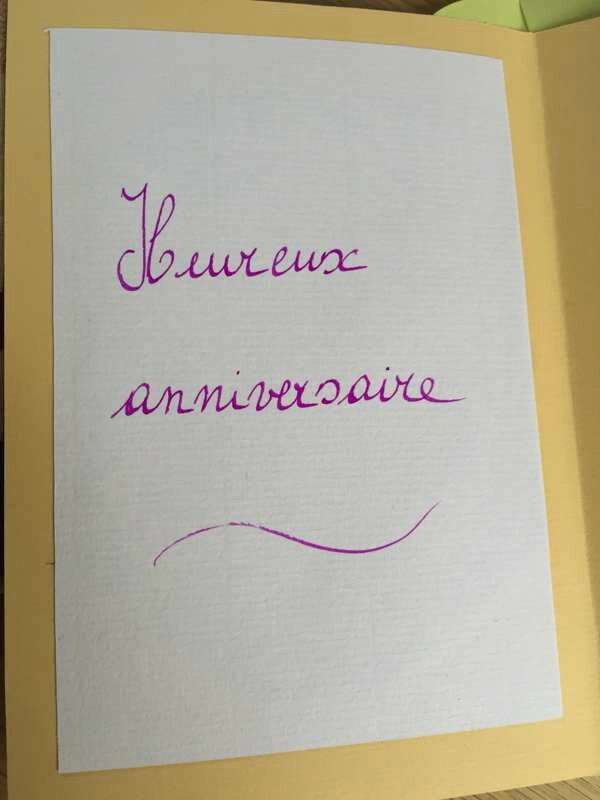 Heureux
anniversaire